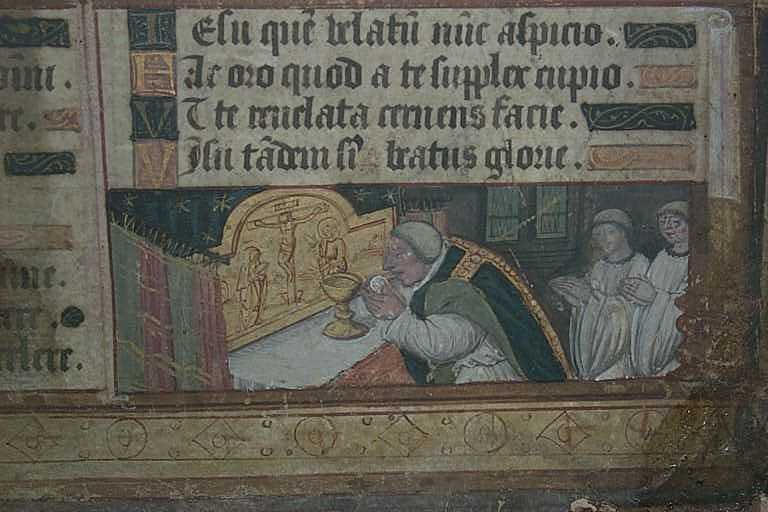 IEsu quē velatū nūc aspicio.
HAc oro quod a te supplex cupio.
VT te reuelata cernens facie.
VIsu tādem sī beatus glorie.